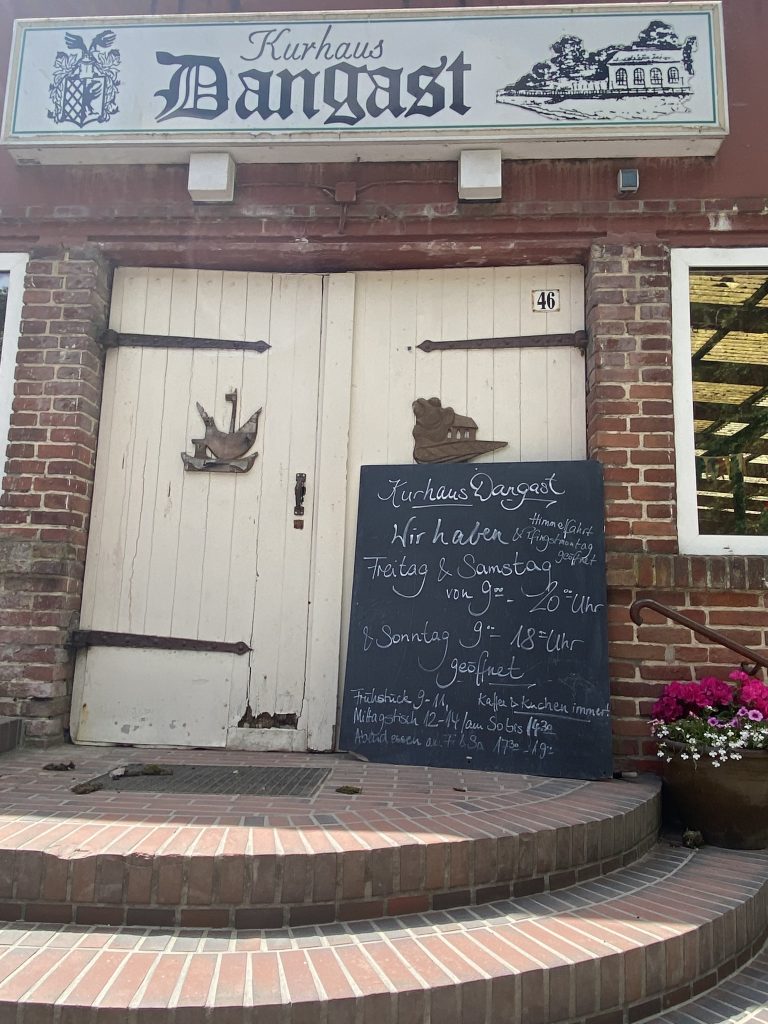 Kurhaus
Dangast
46
Kurhaus Dangast
Wir haben
Himmelfahrt
& Pfingstmontag
geöffnet
Freitag & Samstag
von 9⁰⁰ - 20⁰⁰ Uhr
& Sonntag 9⁰⁰ - 18⁰⁰ Uhr
geöffnet
Frühstück 9-11, Kaffee & Kuchen immer!
Mittagstisch 12-14 / am So bis 14³⁰
Abendessen am Fr & Sa 17³⁰ - 19⁰⁰